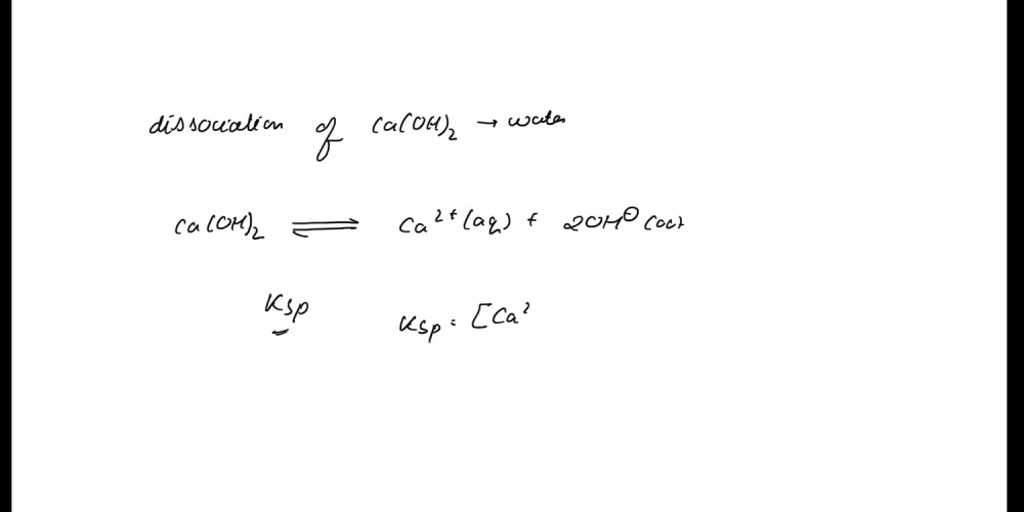 dissociation of Ca(OH)₂ → water
Ca(OH)₂ ⇌ Ca²⁺(aq) + 2OH⊖
Ksp Ksp = [Ca²